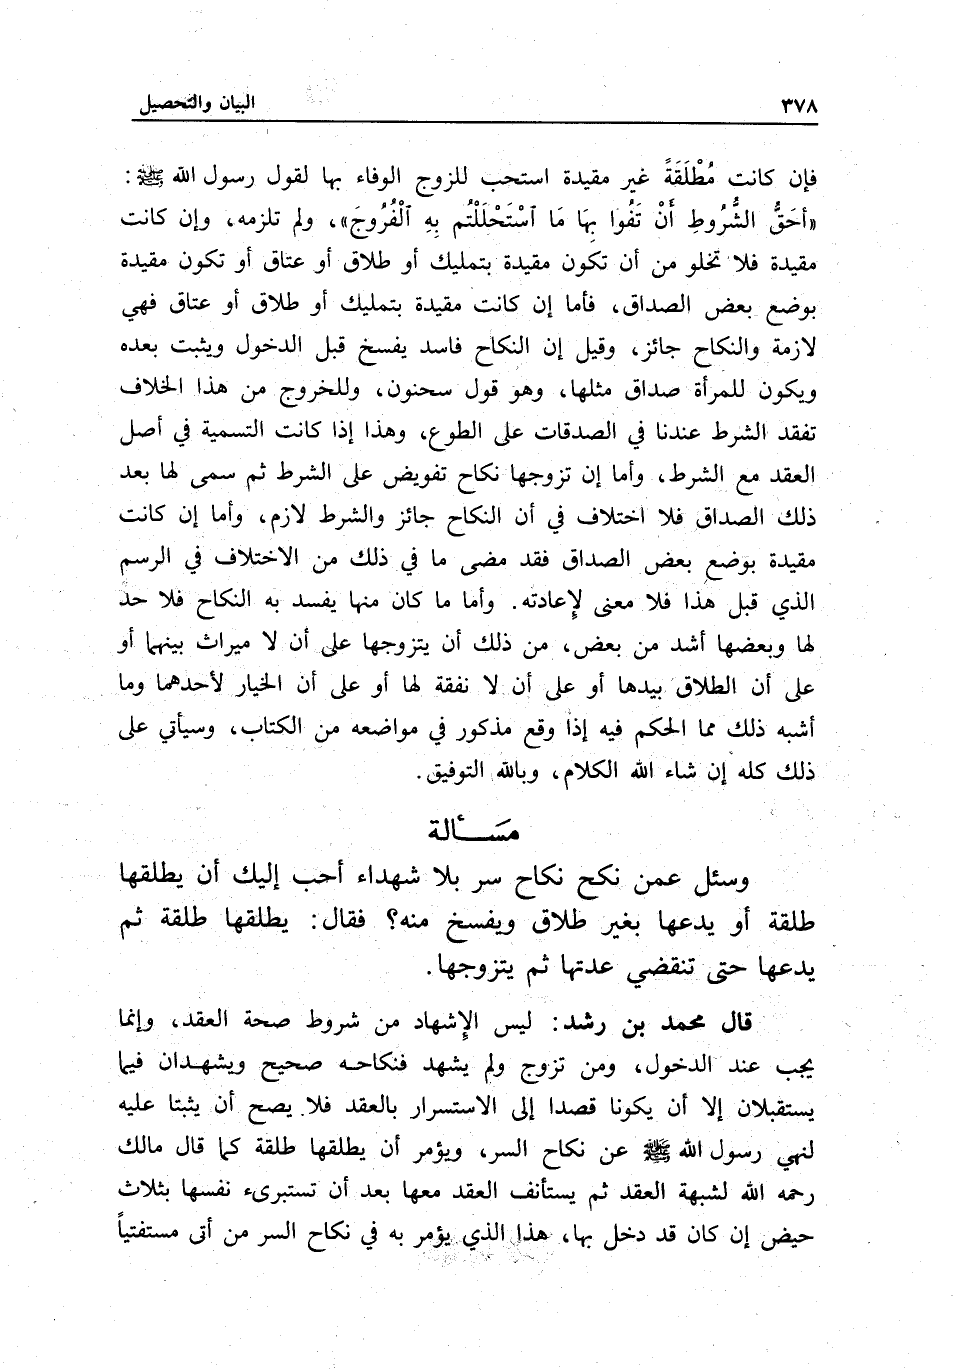 ٣٧٨
البيان والتحصيل
فإن كانت مُطْلَقَةً غير مقيدة استحب للزوج الوفاء بها لقول رسول الله ﷺ :
«أحَقُّ الشُّرُوطِ أَنْ تَفُوا بِهَا مَا ٱسْتَحْلَلْتُم بِهِ ٱلْفُرُوجَ»، ولم تلزمه، وإن كانت
مقيدة فلا تخلو من أن تكون مقيدة بتمليك أو طلاق أو عتاق أو تكون مقيدة
بوضع بعض الصداق، فأما إن كانت مقيدة بتمليك أو طلاق أو عتاق فهي
لازمة والنكاح جائز، وقيل إن النكاح فاسد يفسخ قبل الدخول ويثبت بعده
ويكون للمرأة صداق مثلها، وهو قول سحنون، وللخروج من هذا الخلاف
تفقد الشرط عندنا في الصدقات على الطوع، وهذا إذا كانت التسمية في أصل
العقد مع الشرط، وأما إن تزوجها نكاح تفويض على الشرط ثم سمى لها بعد
ذلك الصداق فلا اختلاف في أن النكاح جائز والشرط لازم، وأما إن كانت
مقيدة بوضع بعض الصداق فقد مضى ما في ذلك من الاختلاف في الرسم
الذي قبل هذا فلا معنى لإعادته. وأما ما كان منها يفسد به النكاح فلا حد
لها وبعضها أشد من بعض، من ذلك أن يتزوجها على أن لا ميراث بينهما أو
على أن الطلاق بيدها أو على أن لا نفقة لها أو على أن الخيار لأحدهما وما
أشبه ذلك مما الحكم فيه إذا وقع مذكور في مواضعه من الكتاب، وسيأتي على
ذلك كله إن شاء الله الكلام، وبالله التوفيق.
مَســألة
وسئل عمن نكح نكاح سر بلا شهداء أحب إليك أن يطلقها
طلقة أو يدعها بغير طلاق ويفسخ منه؟ فقال: يطلقها طلقة ثم
يدعها حتى تنقضي عدتها ثم يتزوجها.
قال محمد بن رشد: ليس الإشهاد من شروط صحة العقد، وإنما
يجب عند الدخول، ومن تزوج ولم يشهد فنكاحه صحيح ويشهدان فيما
يستقبلان إلا أن يكونا قصدا إلى الاستسرار بالعقد فلا يصح أن يثبتا عليه
لنهي رسول الله ﷺ عن نكاح السر، ويؤمر أن يطلقها طلقة كما قال مالك
رحمه الله لشبهة العقد ثم يستأنف العقد معها بعد أن تستبرىء نفسها بثلاث
حيض إن كان قد دخل بها، هذا الذي يؤمر به في نكاح السر من أتى مستفتياً